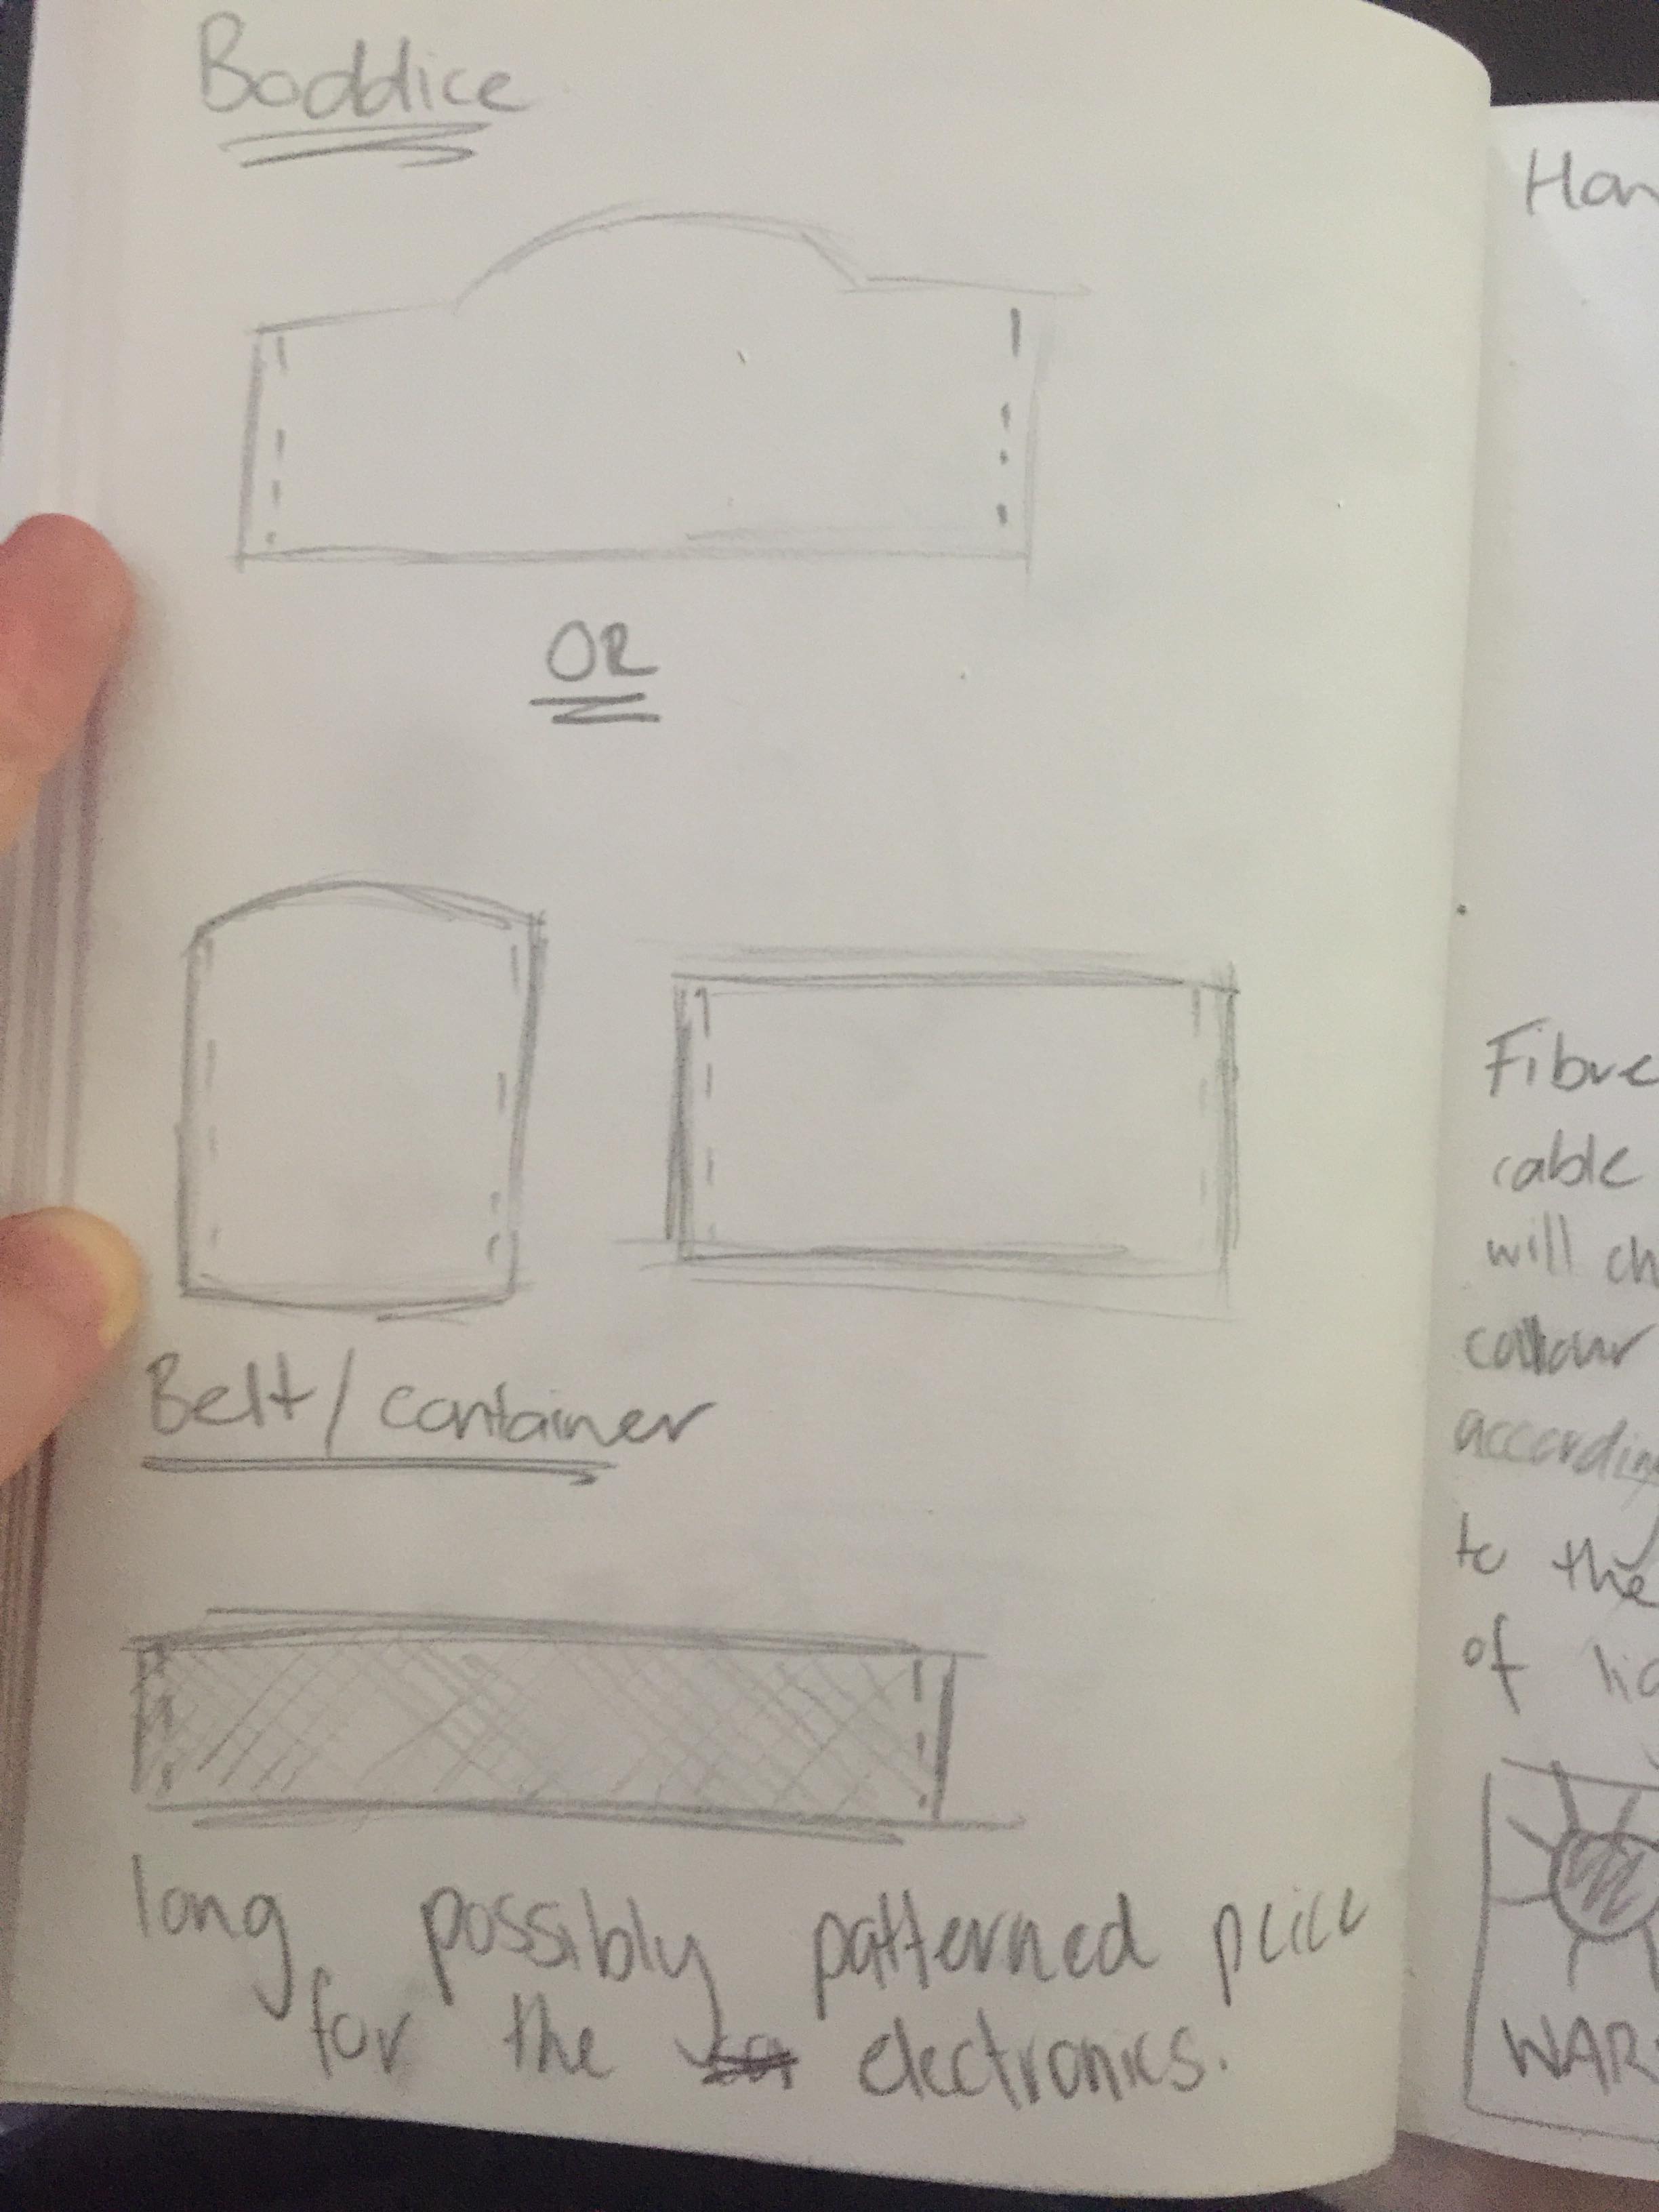 Boddice
OR
Belt / container
long possibly patterned peice
for the electronics.
Fibre
cable
will ch
collour
according
to the
of
WAR